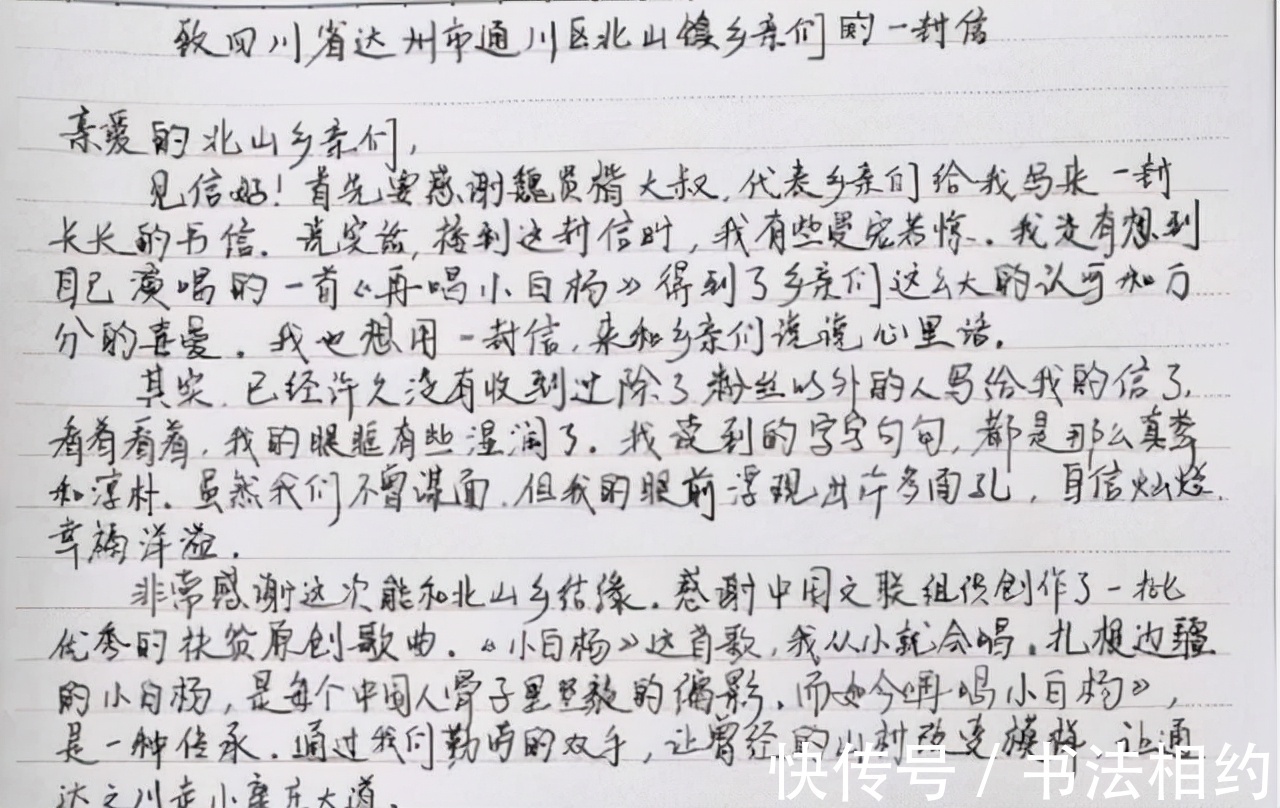 致四川省达州市通川区北山镇乡亲们的一封信
亲爱的北山乡亲们,
见信好!首先要感谢魏员楷大叔,代表乡亲们给我写来一封
长长的书信。说实话,接到这封信时,我有些受宠若惊。我没有想到
自己演唱的一首《再唱小白杨》得到了乡亲们这么大的认可和万
分的喜爱。我也想用一封信,来和乡亲们说说心里话。
其实,已经许久没有收到过除了粉丝以外的人写给我的信了,
看着看着,我的眼眶有些湿润了。我读到的字字句句,都是那么真挚
和淳朴。虽然我们不曾谋面,但我的眼前浮现出许多面孔,自信灿烂,
幸福洋溢。
非常感谢这次能和北山乡结缘。感谢中国文联组织创作了一批
优秀的扶贫原创歌曲。《小白杨》这首歌,我从小就会唱。扎根边疆
的小白杨,是每个中国人骨子里坚毅的缩影,而如今《再唱小白杨》,
是一种传承。通过我们勤劳的双手,让曾经的山村改变模样,让通
达之川走小康庄大道。
快传号 / 书法相约